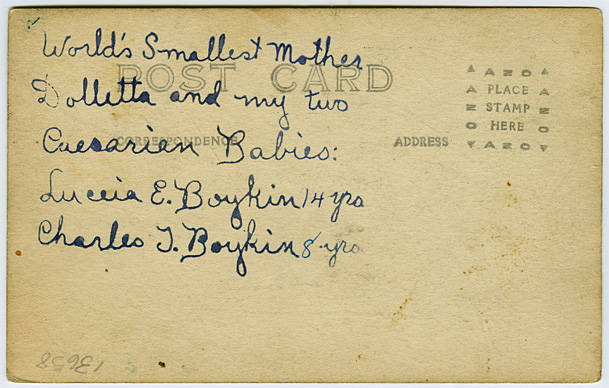 World's Smallest Mother
POST CARD
Dolletta and my two
CORRESPONDENCE
ADDRESS
Caesarien Babies:
Luceia E. Boykin 14 yrs
Charles T. Boykin 8 yrs
AZO
PLACE
STAMP
HERE
AZO
13658